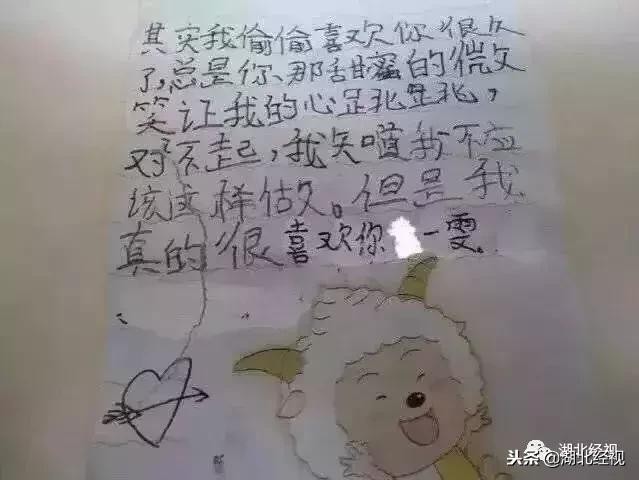 其实我偷偷喜欢你很久
了,总是你、那甜蜜的微
笑让我的心
对不起,我矢噵我不应
该这样估久。但是我
真的很喜欢你 一雯.
湖北经视
头条@湖北经视